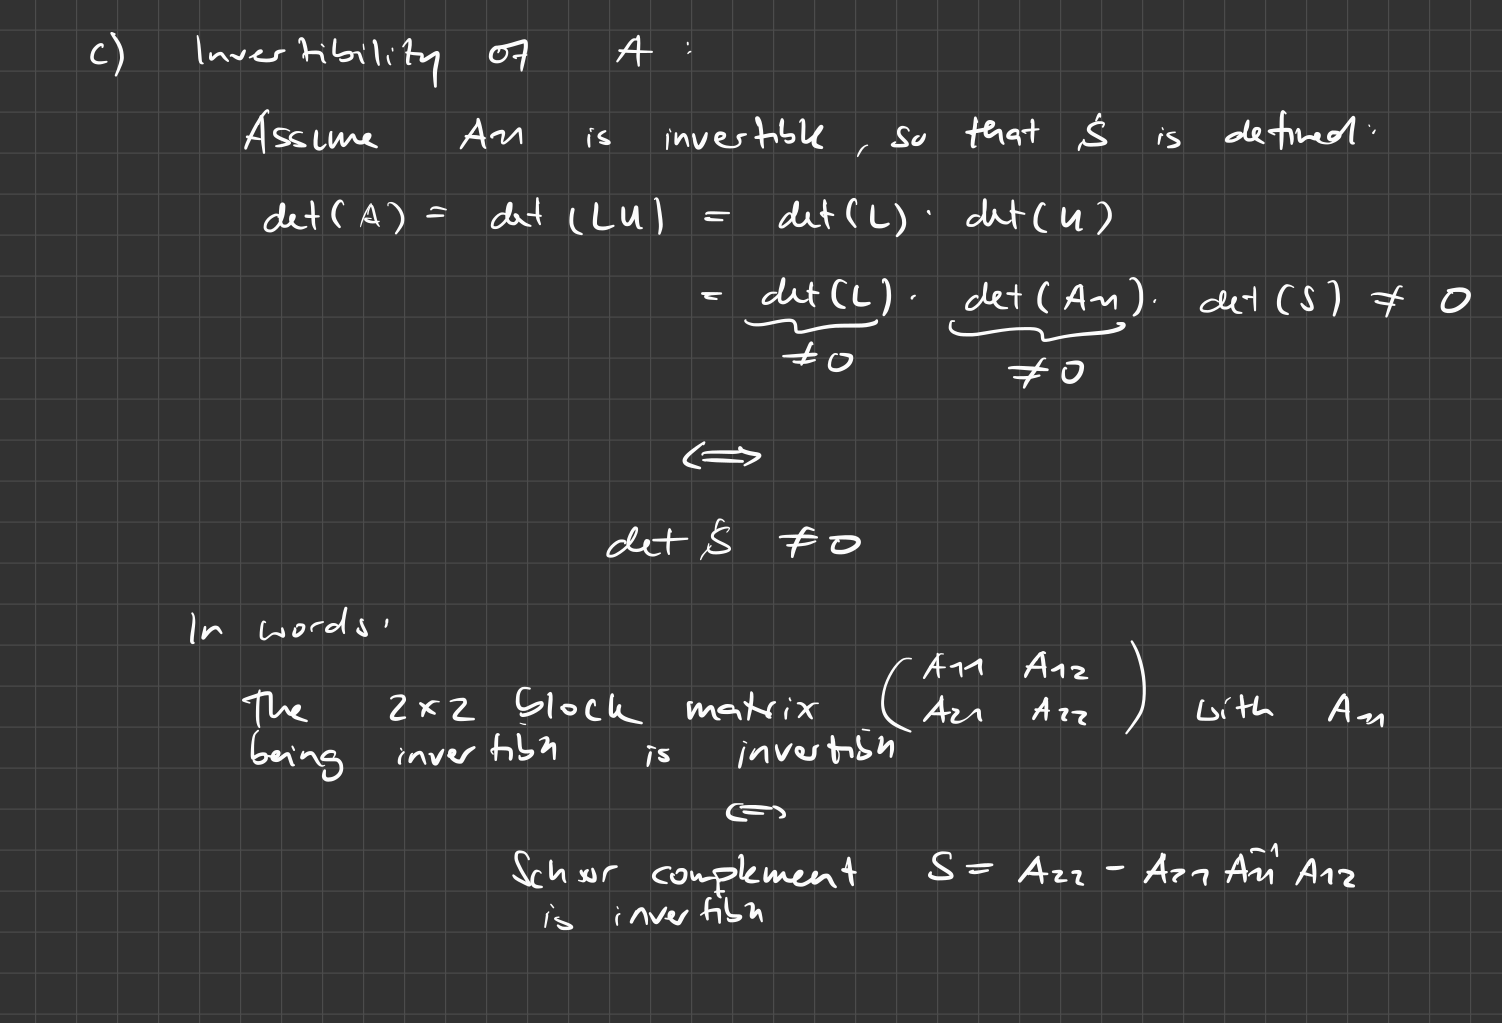 c) Invertibility of A :
Assume A11 is invertible, so that S is defined:
det(A) = det(LU) = det(L) · det(U)
= det(L) · det(A11) · det(S) ≠ 0
≠0 ≠0
⟺
det S ≠ 0
In words:
The 2x2 block matrix ( A11 A12
A21 A22 ) with A11
being invertible is invertible
⟺
Schur complement S = A22 - A21 A11^-1 A12
is invertible